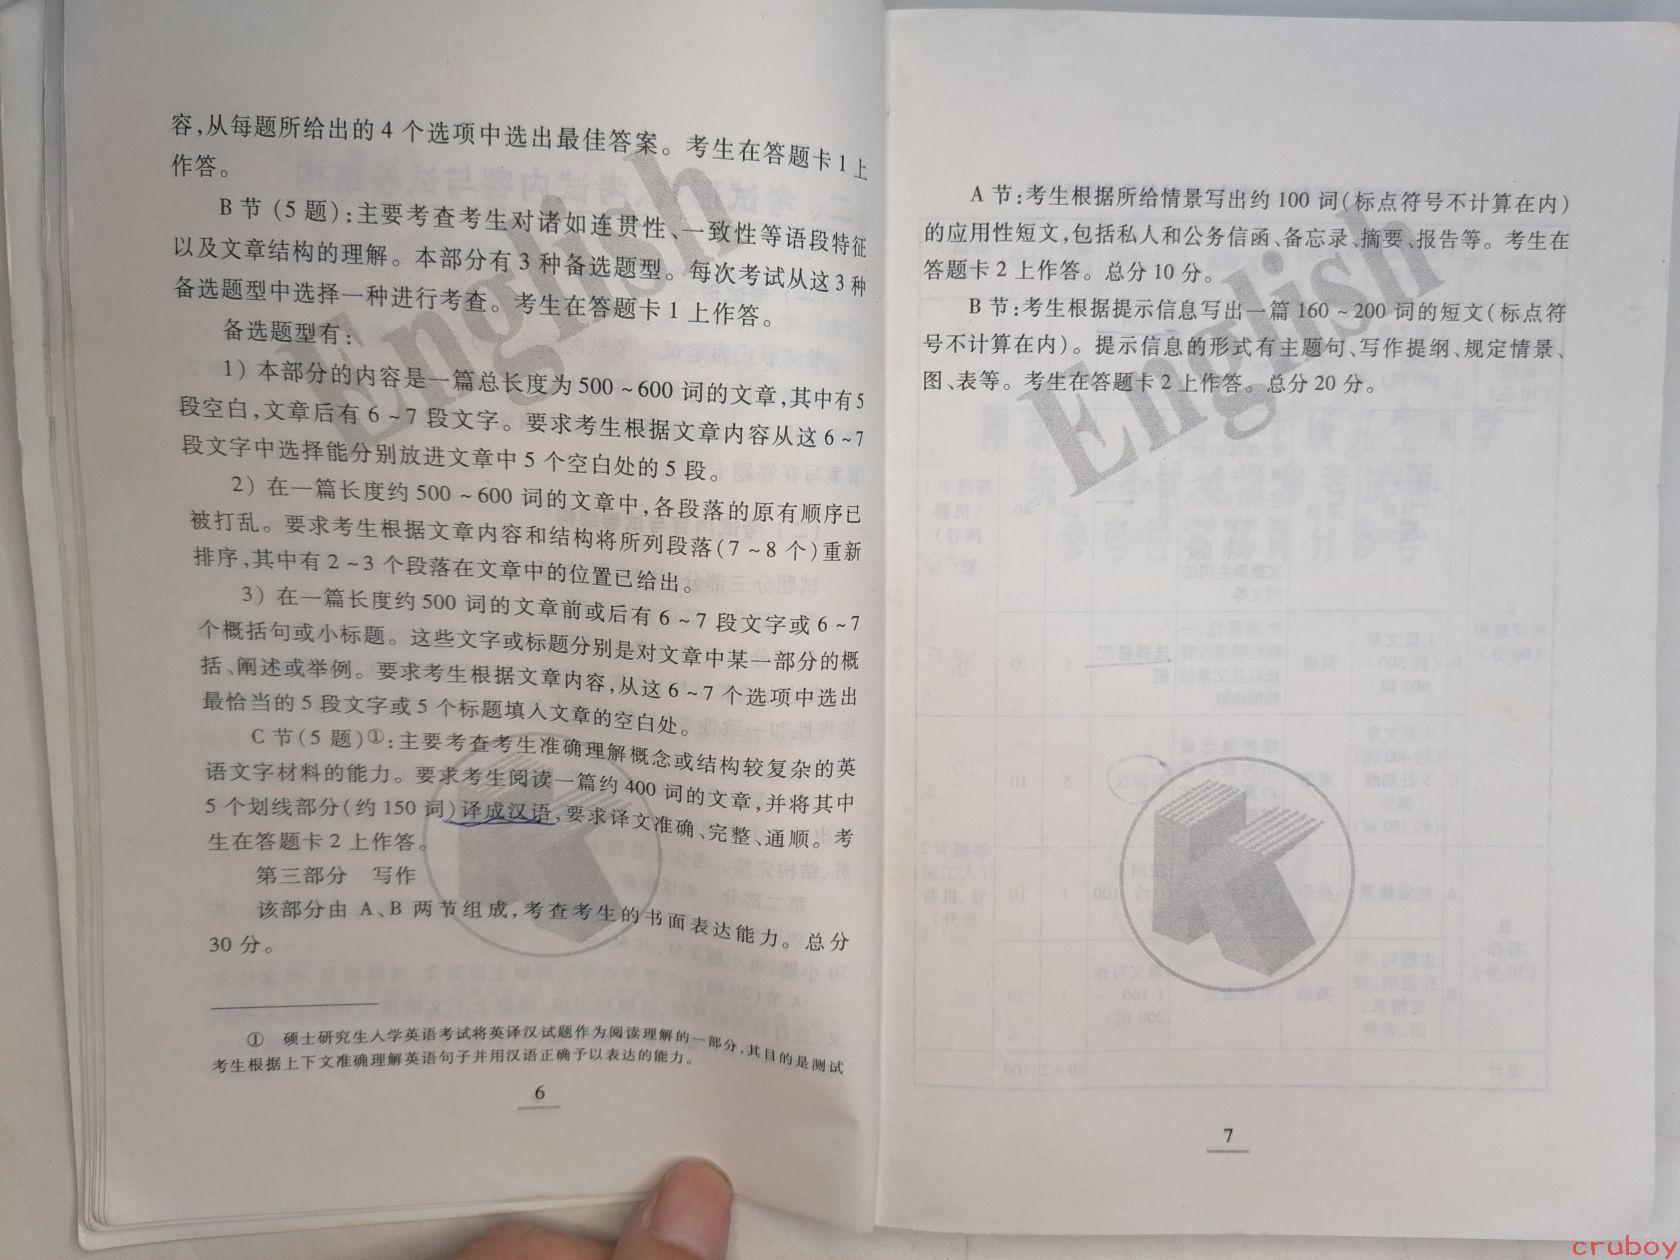 容,从每题所给出的4个选项中选出最佳答案。考生在答题卡1上
作答。
B节(5题):主要考查考生对诸如连贯性、一致性等语段特征
以及文章结构的理解。本部分有3种备选题型。每次考试从这3种
备选题型中选择一种进行考查。考生在答题卡1上作答。
备选题型有:
1)本部分的内容是一篇总长度为500~600词的文章,其中有5
段空白,文章后有6~7段文字。要求考生根据文章内容从这6~7
段文字中选择能分别放进文章中5个空白处的5段。
2)在一篇长度约500~600词的文章中,各段落的原有顺序已
被打乱。要求考生根据文章内容和结构将所列段落(7~8个)重新
排序,其中有2~3个段落在文章中的位置已给出。
3)在一篇长度约500词的文章前或后有6~7段文字或6~7
个概括句或小标题。这些文字或标题分别是对文章中某一部分的概
括、阐述或举例。要求考生根据文章内容,从这6~7个选项中选出
最恰当的5段文字或5个标题填入文章的空白处。
C节(5题)①:主要考查考生准确理解概念或结构较复杂的英
语文字材料的能力。要求考生阅读一篇约400词的文章,并将其中
5个划线部分(约150词)译成汉语,要求译文准确、完整、通顺。考
生在答题卡2上作答。
第三部分 写作
该部分由A、B两节组成,考查考生的书面表达能力。总分
30分。
① 硕士研究生入学英语考试将英译汉试题作为阅读理解的一部分,其目的是测试
考生根据上下文准确理解英语句子并用汉语正确予以表达的能力。
6
English
A节:考生根据所给情景写出约100词(标点符号不计算在内)
的应用性短文,包括私人和公务信函、备忘录、摘要、报告等。考生在
答题卡2上作答。总分10分。
B节:考生根据提示信息写出一篇160~200词的短文(标点符
号不计算在内)。提示信息的形式有主题句、写作提纲、规定情景、
图、表等。考生在答题卡2上作答。总分20分。
English
7
cruboy